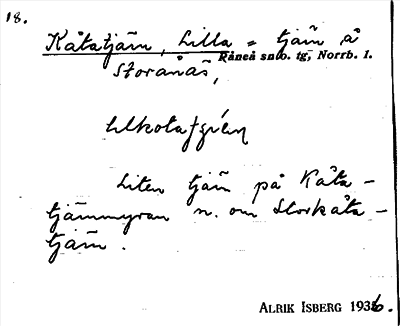 18.
Kåtatjärn, Lilla = tjärn å
Råneå snb. tg, Norrb. l.
Storånäs,
Liten tjärn på Kåta-
tjärnmyran n. om Storkåta-
tjärn.
ALRIK ISBERG 1936.